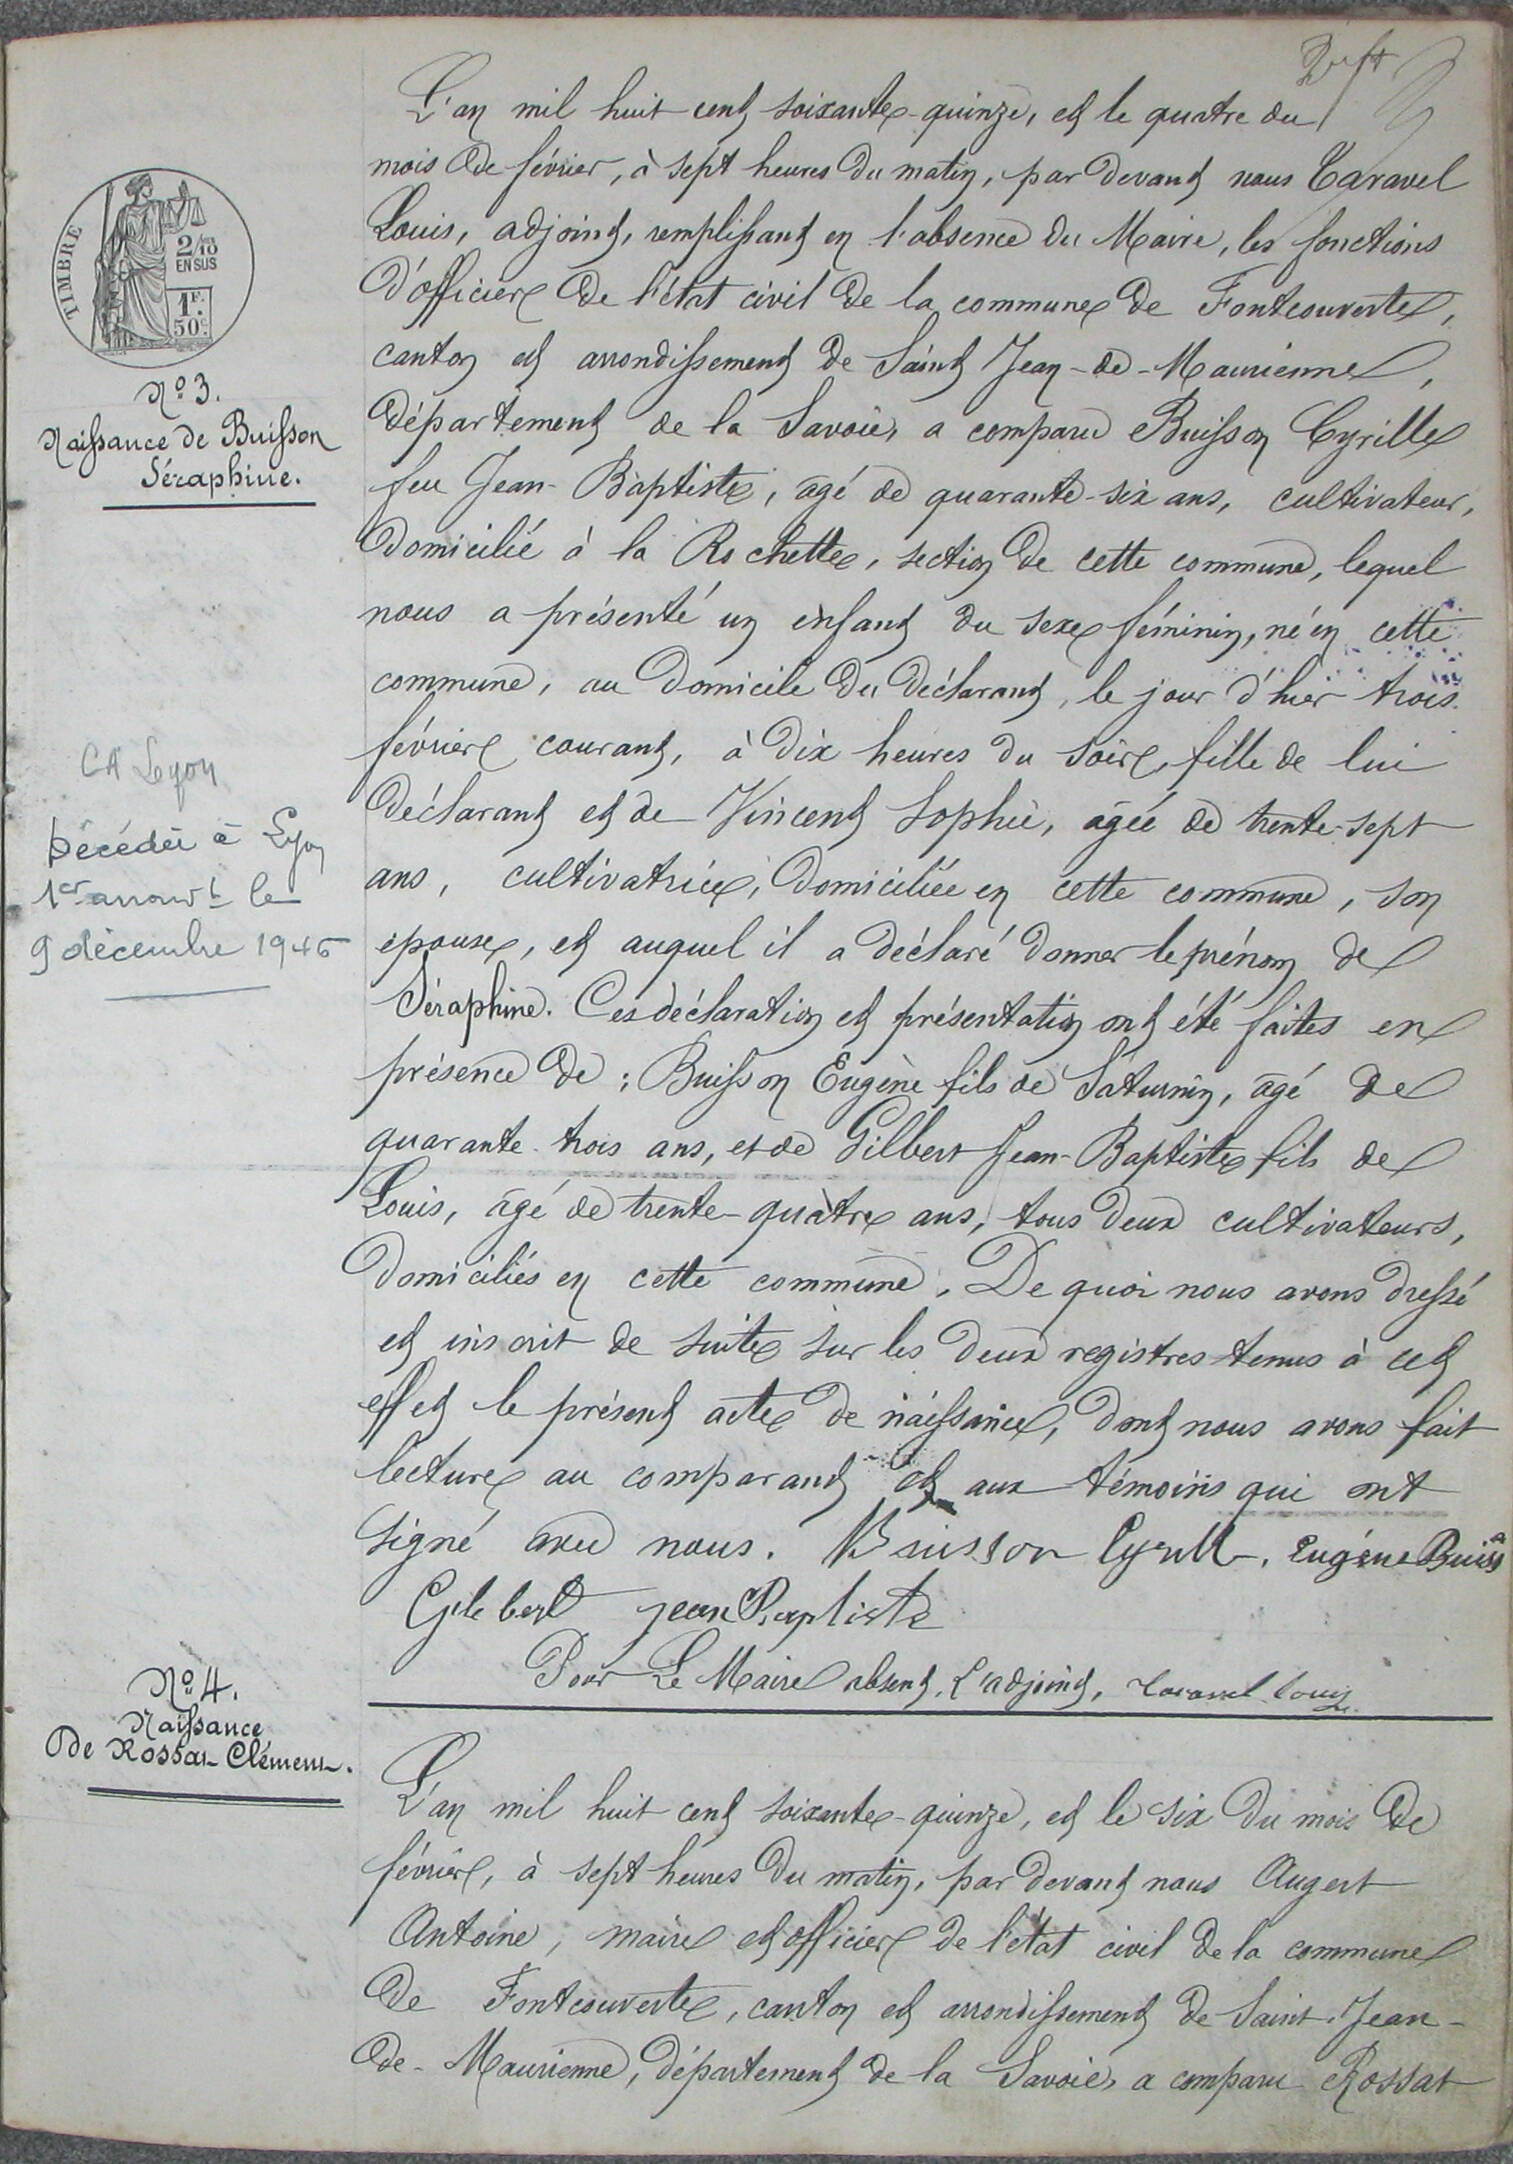 L'an mil huit cent soixante-quinze, et le quatre du
mois de février, à sept heures du matin, par devant nous Taravel
Louis, adjoint, remplissant en l'absence du Maire, les fonctions
d'officier de l'état civil de la commune de Fontcouverte,
canton et arrondissement de Saint Jean-de-Maurienne,
département de la Savoie, a comparu Buisson Cyrille
feu Jean-Baptiste, âgé de quarante-six ans, cultivateur,
domicilié à la Rochette, section de cette commune, lequel
nous a présenté un enfant du sexe féminin, né en cette
commune, au domicile du déclarant, le jour d'hier trois
février courant, à dix heures du soir, fille de lui
déclarant et de Vincent Sophie, âgée de trente-sept
ans, cultivatrice, domiciliée en cette commune, son
épouse, et auquel il a déclaré donner le prénom de
Séraphine. Ces déclaration et présentation ont été faites en
présence de : Buisson Eugène fils de Saturnin, âgé de
quarante-trois ans, et de Gilbert Jean-Baptiste fils de
Louis, âgé de trente-quatre ans, tous deux cultivateurs,
domiciliés en cette commune. De quoi nous avons dressé
et inscrit de suite sur les deux registres tenus à cet
effet le présent acte de naissance, dont nous avons fait
lecture au comparant et aux témoins qui ont
signé avec nous. Buisson Cyrille, Eugène Buisson
Gilbert jean Baptiste
Pour Le Maire absent, L'adjoint, taravel louis
TIMBRE
2/10
EN SUS
1F.
50C.
N° 3.
Naissance de Buisson
Séraphine.
CA Lyon
Décédée à Lyon
1er arrondt le
9 décembre 1946
N° 4.
Naissance
De Rossat Clément.
L'an mil huit cent soixante-quinze, et le six du mois de
février, à sept heures du matin, par devant nous Augert
Antoine, maire et officier de l'état civil de la commune
de Fontcouverte, canton et arrondissement de Saint-Jean-
de-Maurienne, département de la Savoie, a comparu Rossat